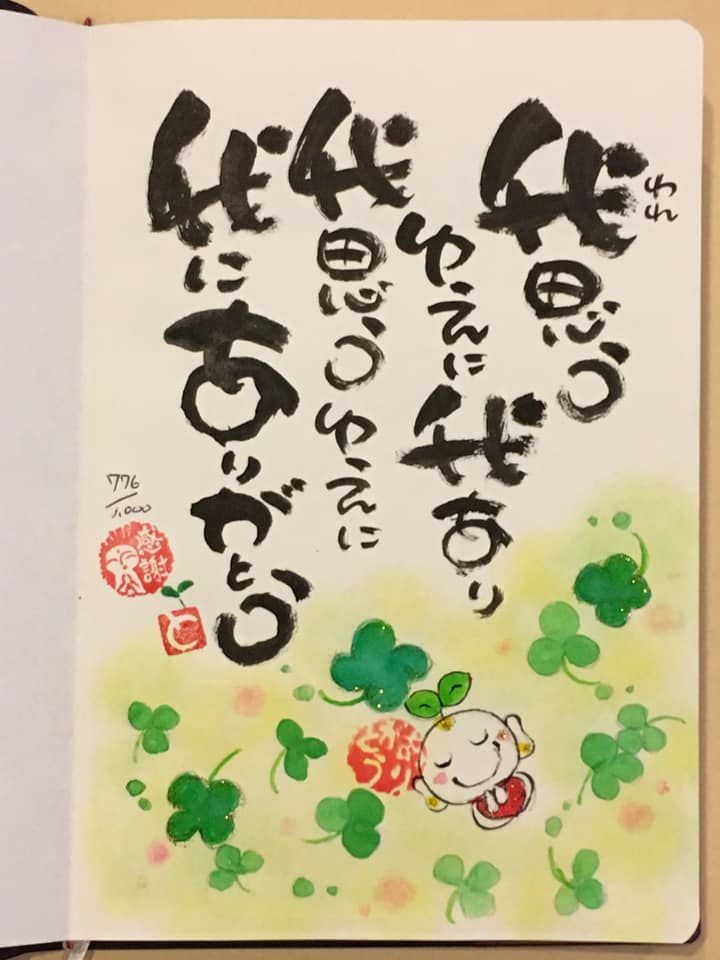 我思う
われ
ゆえに我あり
我思うゆえに
我にありがとう
776/1,000
感謝